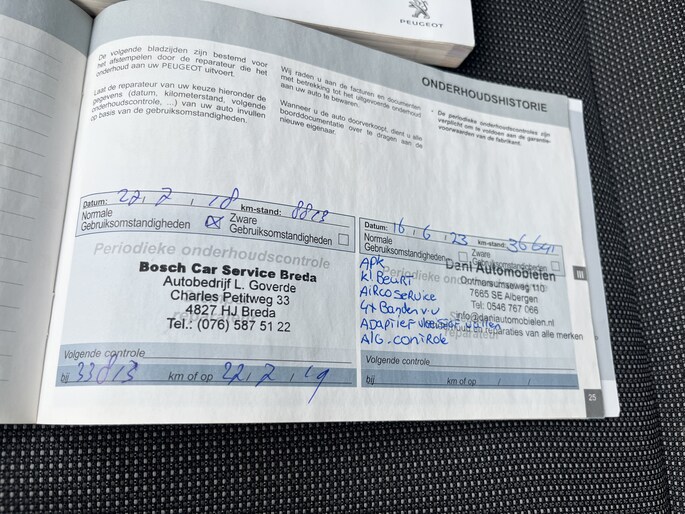 PEUGEOT
ONDERHOUDSHISTORIE
De volgende bladzijden zijn bestemd voor
het afstempelen door de reparateur die het
onderhoud aan uw PEUGEOT uitvoert.
Laat de reparateur van uw keuze hieronder de
gegevens (datum, kilometerstand, volgende
onderhoudscontrole, ...) van uw auto invullen
op basis van de gebruiksomstandigheden.
Wij raden u aan de facturen en documenten
met betrekking tot het uitgevoerde onderhoud
aan uw auto te bewaren.
Wanneer u de auto doorverkoopt, dient u alle
boorddocumentatie over te dragen aan de
nieuwe eigenaar.
- De periodieke onderhoudscontroles zijn
verplicht om te voldoen aan de garantie-
voorwaarden van de fabrikant.
Datum: 22, 2, 18 km-stand: 8813
Normale
Gebruiksomstandigheden
Zware
Gebruiksomstandigheden
Periodieke onderhoudscontrole
Bosch Car Service Breda
Autobedrijf L. Goverde
Charles Petitweg 33
4827 HJ Breda
Tel.: (076) 587 51 22
Volgende controle
bij 33813 km of op 22, 2, 19
Datum: 16, 6, 23 km-stand:
Normale
Gebruiksomstandigheden
Zware
Gebruiksomstandigheden
Dani Automobielen
7665 SE Albergen
Tel: 0546 767 066
info@daniautomobielen.nl
en reparaties van alle merken
reparateur
APK
Kl Beurt
AiRCO SeRVice
4x Banden v.v
Alg. controle
Volgende controle
bij km of op
III
25